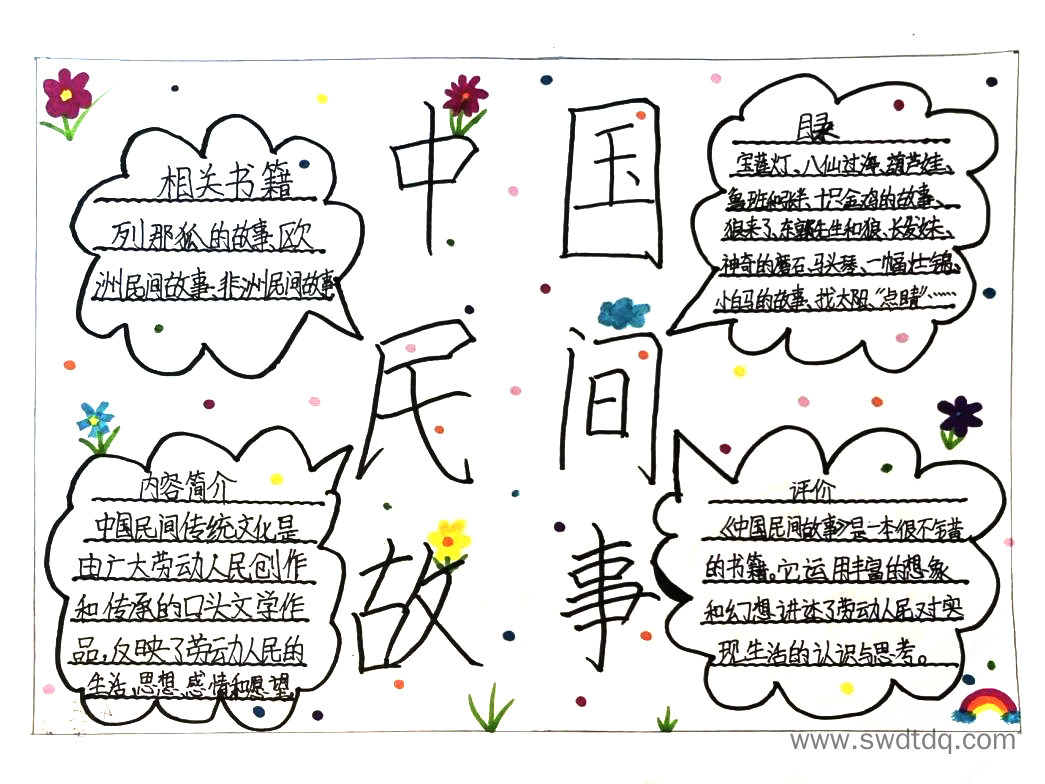 中国
民间
故事
相关书籍
列那狐的故事、欧
洲民间故事、非洲民间故事
目录
宝莲灯、八仙过海、葫芦娃、
鲁班和张、十只金鸡的故事、
狼来了、东郭先生和狼、长发妹、
神奇的磨石、马头琴、一幅壮锦、
小白马的故事、找太阳、“点睛”……
内容简介
中国民间传统文化是
由广大劳动人民创作
和传承的口头文学作
品,反映了劳动人民的
生活、思想、感情和愿望
评价
《中国民间故事》是一本很不错
的书籍。它运用丰富的想象
和幻想讲述了劳动人民对实
现生活的认识与思考。
www.swdtdq.com